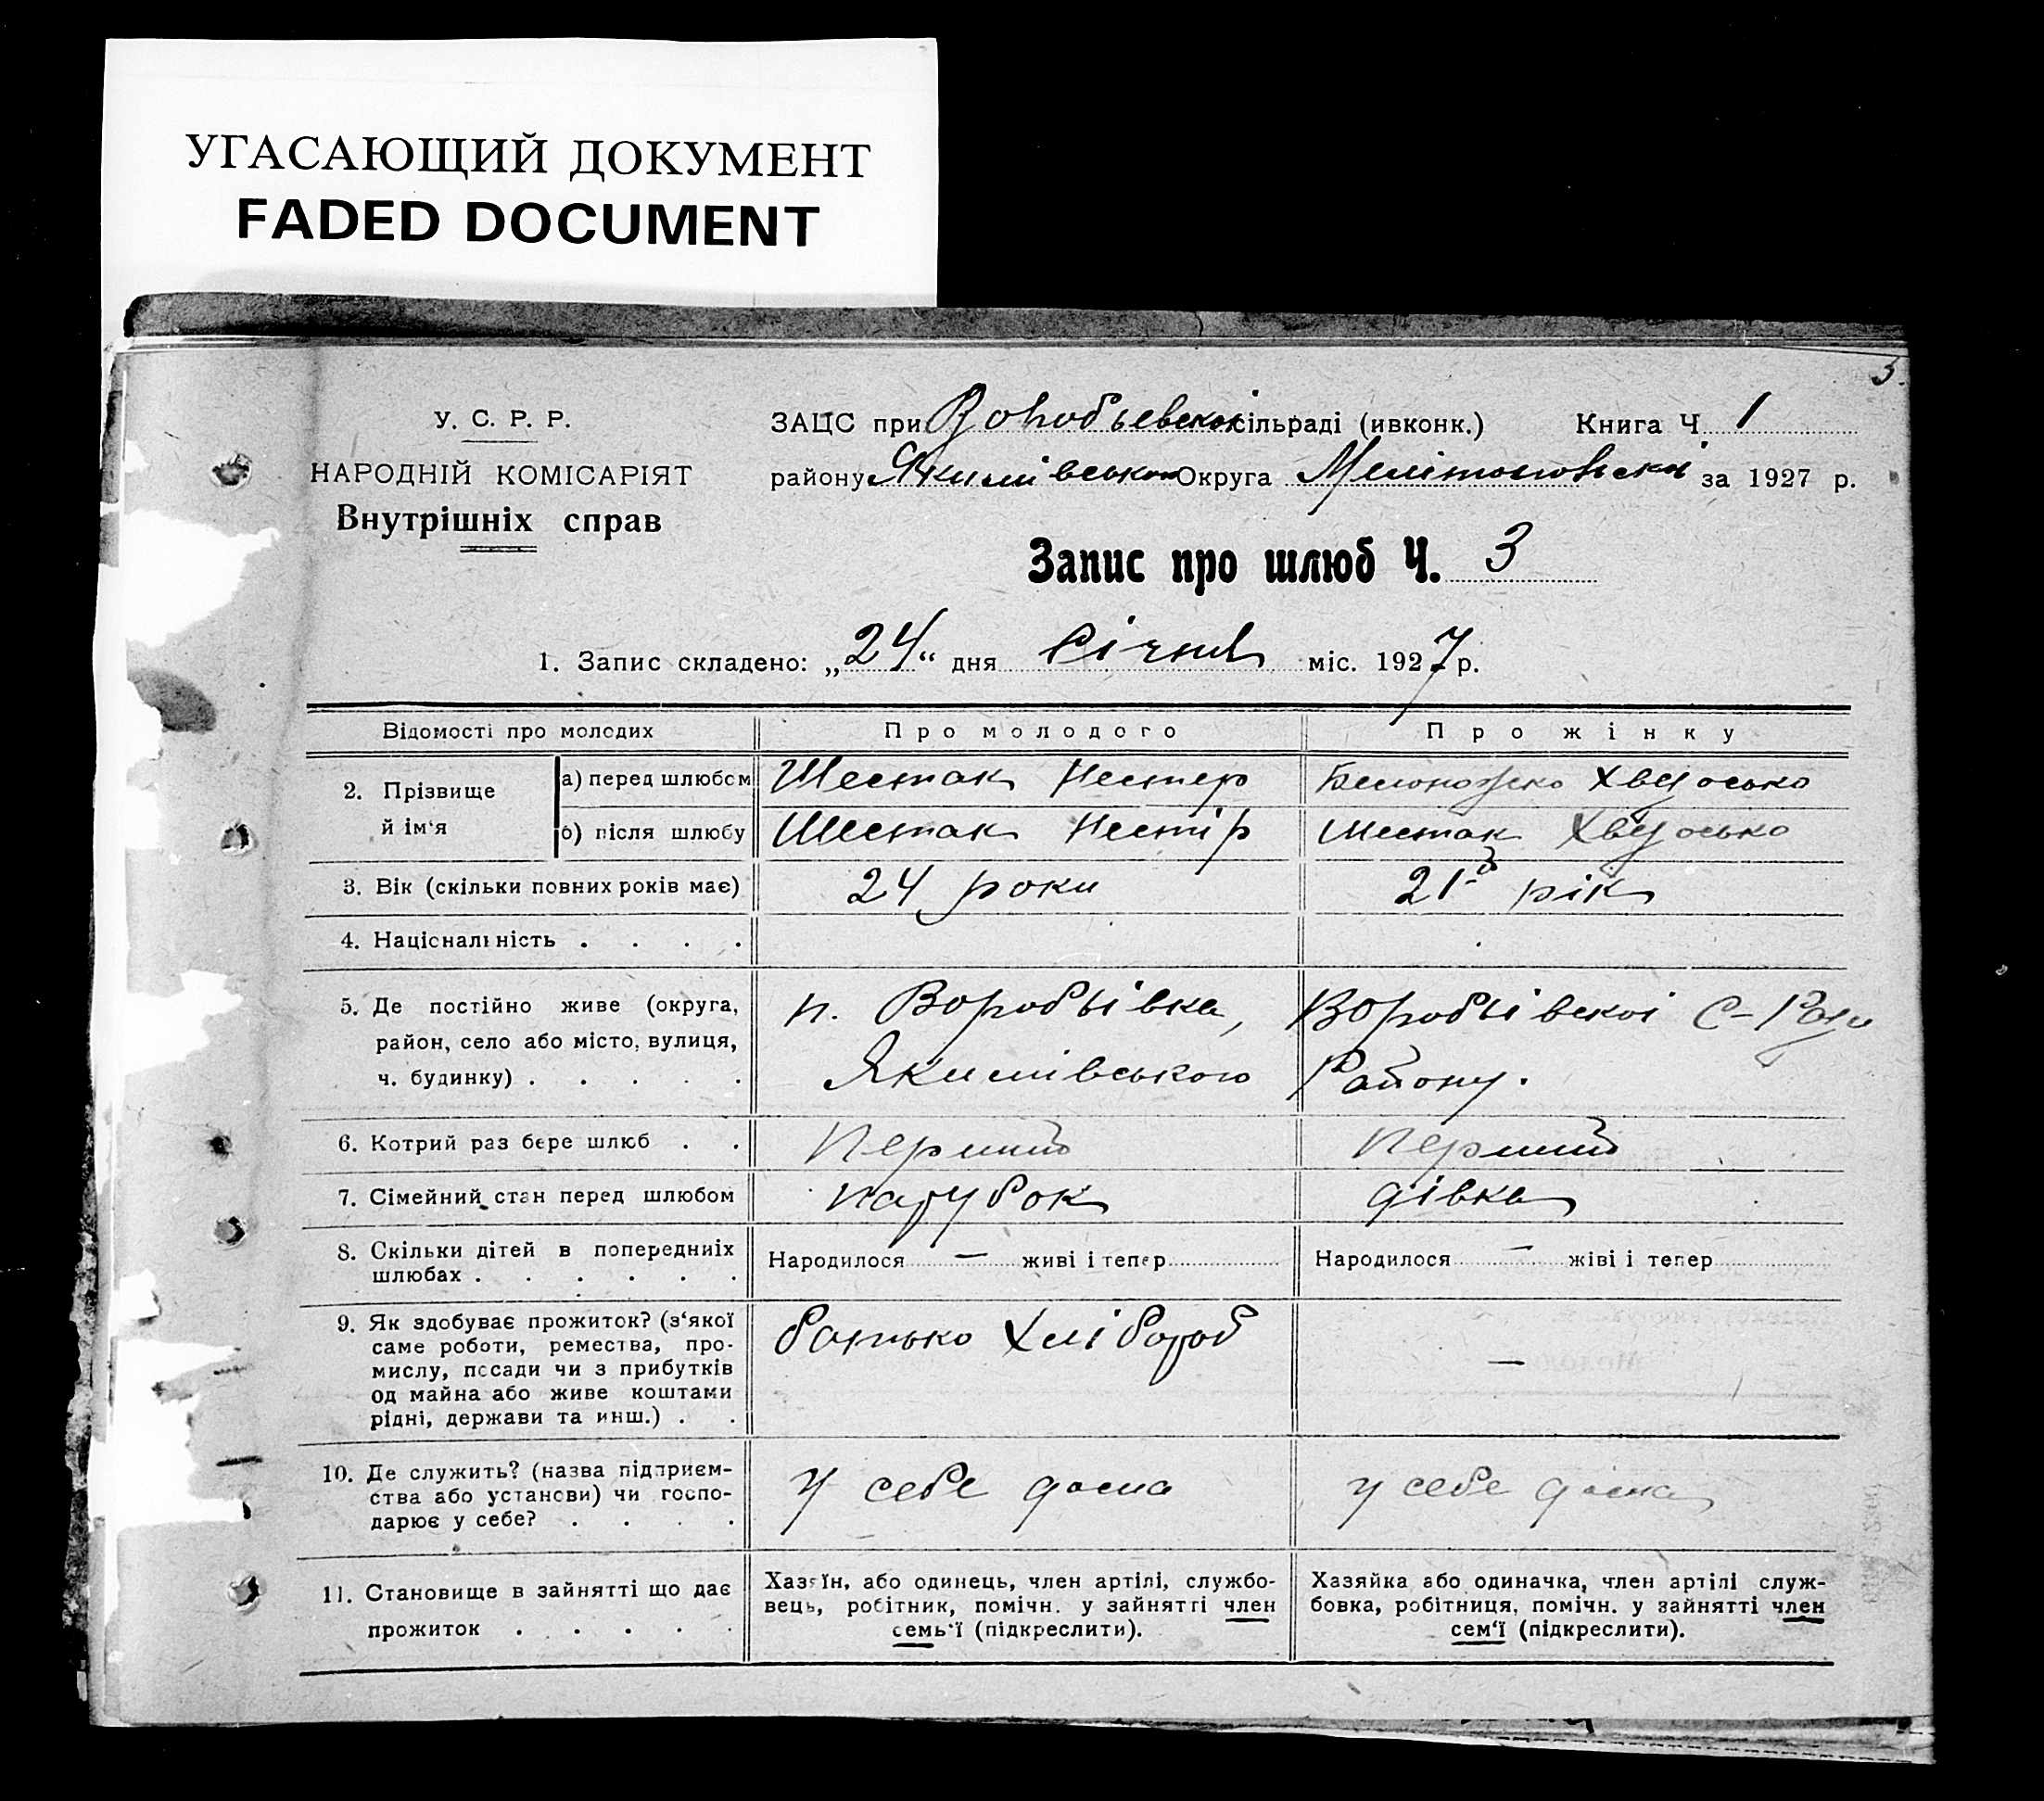 УГАСАЮЩИЙ ДОКУМЕНТ
FADED DOCUMENT
3.
У. С. Р. Р.
НАРОДНІЙ КОМІСАРІЯТ
Внутрішніх справ
ЗАЦС при Воробьевскої сільраді (ивконк.) Книга Ч. 1
району Якимівського Округа Мелітопольскої за 1927 р.
Запис про шлюб Ч. 3
1. Запис складено: „24“ дня Січня міс. 1927 р.
Відомості про молодих
Про молодого
Про жінку
2. Прізвище й ім‘я
а) перед шлюбом
Шестак Нестер
Хведосько
б) після шлюбу
Шестак Нестір
Шестак Хведосько
3. Вік (скільки повних років має)
24 роки
21 рік
4. Національність . . . .
5. Де постійно живе (округа,
район, село або місто, вулиця,
ч. будинку) . . . . .
п. Воробьівка,
Якимівського
Воробьівскоі С-Ради
Району.
6. Котрий раз бере шлюб . .
Перший
Перший
7. Сімейний стан перед шлюбом
парубок
дівка
8. Скільки дітей в попередниіх
шлюбах . . . . . .
Народилося — живі і тепер
Народилося — жіві і тепер
9. Як здобуває прожиток? (з‘якої
саме роботи, ремества, про-
мислу, посади чи з прибутків
од майна або живе коштами
рідні, держави та инш.) . .
батько Хлібороб
—
10. Де служить? (назва підприєм-
ства або установи) чи госпо-
дарює у себе? . . . .
У себе дома
у себе дома
11. Становище в зайнятті що дає
прожиток . . . . .
Хазяїн, або одинець, член артілі, службо-
вець, робітник, помічн. у зайнятті член
семь‘ї (підкреслити).
Хазяйка або одиначка, член артілі служ-
бовка, робітниця, помічн. у зайнятті член
сем‘ї (підкреслити).